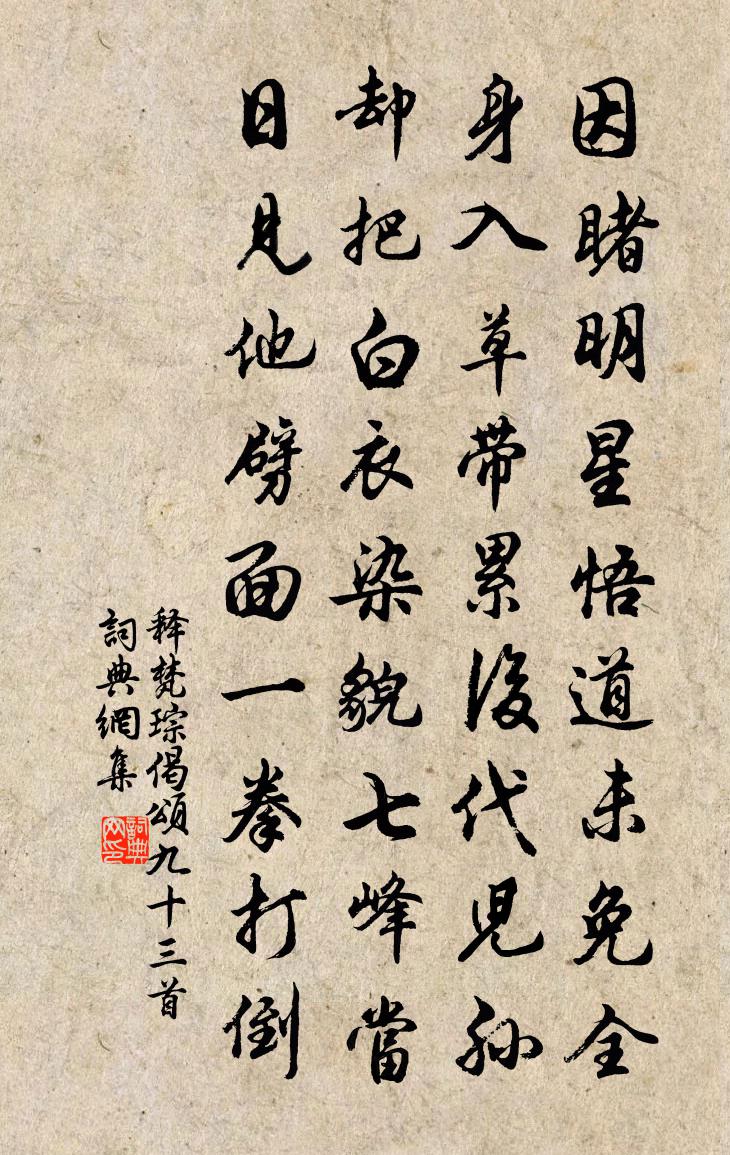 因睹明星悟道未免全
身入草带累後代児孙
却把白衣染貌七峰當
日見他劈面一拳打倒
释梵琮偈颂九十三首
詞典網集
詞典
网印